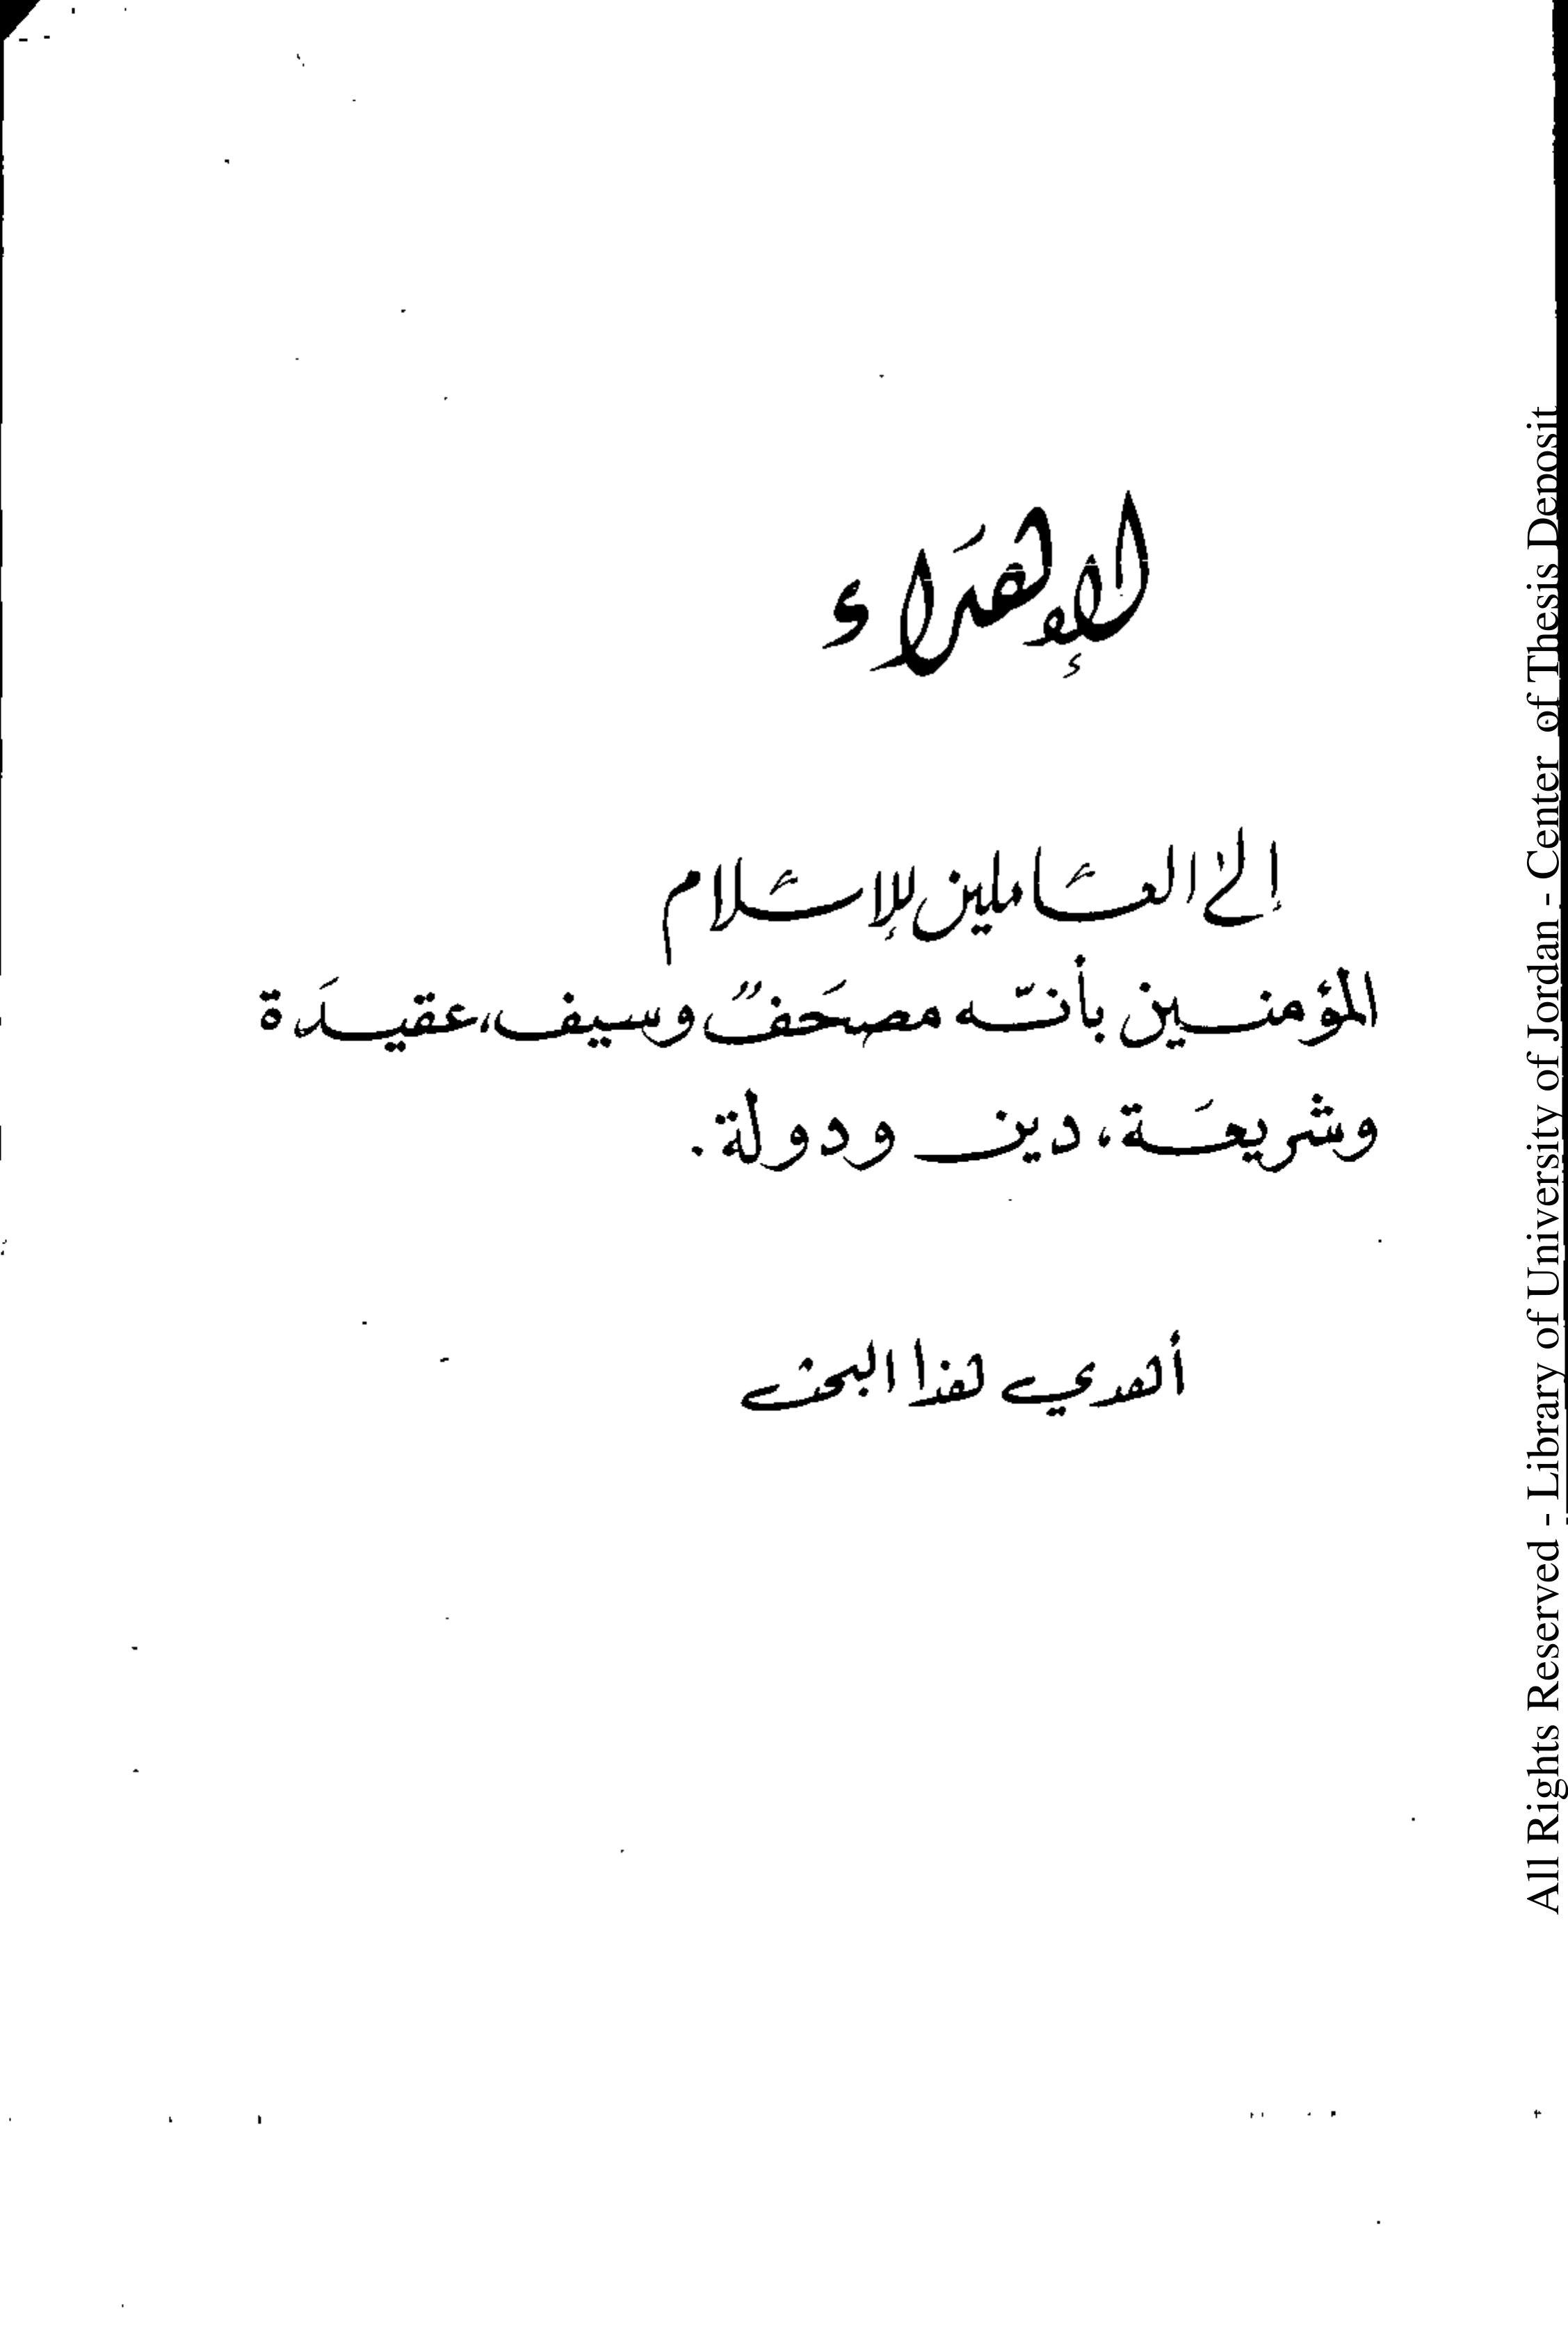 الإهدَاء
إلى العَاملين للإسَلام
المؤمنين بأنّه مصحَفٌ وسيف، عقيدَة
وشريعَة، دين ودولة.
أهدي هذا البحث
All Rights Reserved - Library of University of Jordan - Center of Thesis Deposit